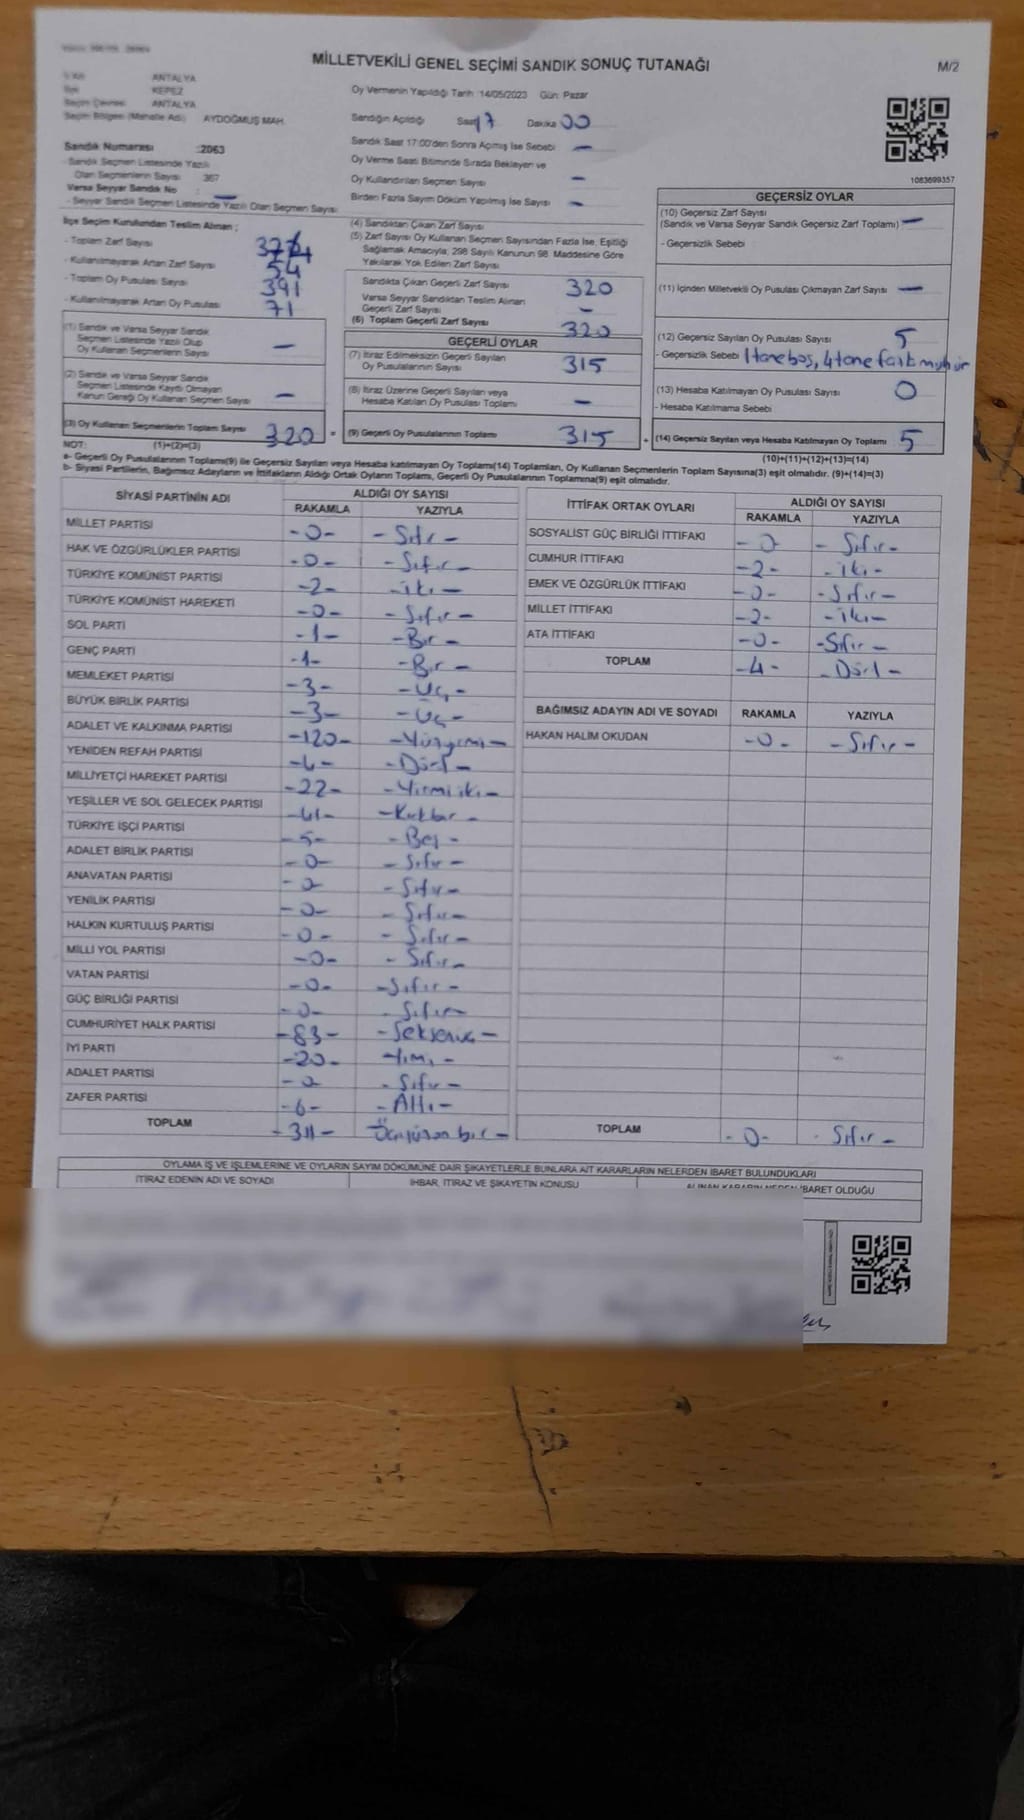 MİLLETVEKİLİ GENEL SEÇİMİ SANDIK SONUÇ TUTANAĞI
M/2
ANTALYA
KEPEZ
ANTALYA
Seçim Bölgesi (Mahalle Adı) AYDOĞMUŞ MAH.
Oy Vermenin Yapıldığı Tarih :14/05/2023 Gün: Pazar
Sandığın Açıldığı Saat 17 Dakika 00
Sandık Saat 17:00'den Sonra Açımış İse Sebebi —
Oy Verme Saati Bitiminde Sırada Bekleyen ve
Oy Kullandırılan Seçmen Sayısı —
Birden Fazla Sayım Döküm Yapılmış İse Sayısı —
1083699357
Sandık Numarası :2063
- Sandık Seçmen Listesinde Yazılı
Olan Seçmenlerin Sayısı 367
Varsa Seyyar Sandık No : —
- Seyyar Sandık Seçmen Listesinde Yazılı Olan Seçmen Sayısı
İlçe Seçim Kurulundan Teslim Alınan ;
- Toplam Zarf Sayısı
- Kullanılmayarak Artan Zarf Sayısı 54
- Toplam Oy Pusulası Sayısı 391
- Kullanılmayarak Artan Oy Pusulası 71
(1) Sandık ve Varsa Seyyar Sandık
Seçmen Listesinde Yazılı Olup
Oy Kullanan Seçmenlerin Sayısı —
(2) Sandık ve Varsa Seyyar Sandık
Seçmen Listesinde Kayıtlı Olmayan
Kanun Gereği Oy Kullanan Seçmen Sayısı —
(3) Oy Kullanan Seçmenlerin Toplam Sayısı 320 =
(1)+(2)=(3)
(4) Sandıktan Çıkan Zarf Sayısı
(5) Zarf Sayısı Oy Kullanan Seçmen Sayısından Fazla İse, Eşitliği
Sağlamak Amacıyla, 298 Sayılı Kanunun 98. Maddesine Göre
Yakılarak Yok Edilen Zarf Sayısı
Sandıkta Çıkan Geçerli Zarf Sayısı 320
Varsa Seyyar Sandıktan Teslim Alınan
Geçerli Zarf Sayısı —
(6) Toplam Geçerli Zarf Sayısı 320
GEÇERLİ OYLAR
(7) İtiraz Edilmeksizin Geçerli Sayılan
Oy Pusulalarının Sayısı 315
(8) İtiraz Üzerine Geçerli Sayılan veya
Hesaba Katılan Oy Pusulası Toplamı —
(9) Geçerli Oy Pusulalarının Toplamı 315 +
GEÇERSİZ OYLAR
(10) Geçersiz Zarf Sayısı
(Sandık ve Varsa Seyyar Sandık Geçersiz Zarf Toplamı) —
- Geçersizlik Sebebi
(11) İçinden Milletvekili Oy Pusulası Çıkmayan Zarf Sayısı —
(12) Geçersiz Sayılan Oy Pusulası Sayısı 5
- Geçersizlik Sebebi 1 tane boş, 4 tane fazla mühür
(13) Hesaba Katılmayan Oy Pusulası Sayısı 0
- Hesaba Katılmama Sebebi
(14) Geçersiz Sayılan veya Hesaba Katılmayan Oy Toplamı 5
(10)+(11)+(12)+(13)=(14)
NOT:
a- Geçerli Oy Pusulalarının Toplamı(9) ile Geçersiz Sayılan veya Hesaba katılmayan Oy Toplamı(14) Toplamları, Oy Kullanan Seçmenlerin Toplam Sayısına(3) eşit olmalıdır. (9)+(14)=(3)
b- Siyasi Partilerin, Bağımsız Adayların ve İttifakların Aldığı Ortak Oyların Toplamı, Geçerli Oy Pusulalarının Toplamına(9) eşit olmalıdır.
SİYASİ PARTİNİN ADI ALDIĞI OY SAYISI
RAKAMLA YAZIYLA
MİLLET PARTİSİ -0- -Sıfır-
HAK VE ÖZGÜRLÜKLER PARTİSİ -0- -Sıfır-
TÜRKİYE KOMÜNİST PARTİSİ -2- -iki-
TÜRKİYE KOMÜNİST HAREKETİ -0- -Sıfır-
SOL PARTİ -1- -Bir-
GENÇ PARTİ -1- -Bir-
MEMLEKET PARTİSİ -3- -Üç-
BÜYÜK BİRLİK PARTİSİ -3- -Üç-
ADALET VE KALKINMA PARTİSİ -120- -Yüzyirmi-
YENİDEN REFAH PARTİSİ -4- -Dört-
MİLLİYETÇİ HAREKET PARTİSİ -22- -Yirmiiki-
YEŞİLLER VE SOL GELECEK PARTİSİ -41- -Kırkbir-
TÜRKİYE İŞÇİ PARTİSİ -5- -Beş-
ADALET BİRLİK PARTİSİ -0- -Sıfır-
ANAVATAN PARTİSİ -0- -Sıfır-
YENİLİK PARTİSİ -0- -Sıfır-
HALKIN KURTULUŞ PARTİSİ -0- -Sıfır-
MİLLİ YOL PARTİSİ -0- -Sıfır-
VATAN PARTİSİ -0- -Sıfır-
GÜÇ BİRLİĞİ PARTİSİ -0- -Sıfır-
CUMHURİYET HALK PARTİSİ -83- -Seksenüç-
İYİ PARTİ -20- -Yirmi-
ADALET PARTİSİ -0- -Sıfır-
ZAFER PARTİSİ -6- -Altı-
TOPLAM -311- Üçyüzonbir-
İTTİFAK ORTAK OYLARI ALDIĞI OY SAYISI
RAKAMLA YAZIYLA
SOSYALİST GÜÇ BİRLİĞİ İTTİFAKI -0- -Sıfır-
CUMHUR İTTİFAKI -2- -iki-
EMEK VE ÖZGÜRLÜK İTTİFAKI -0- -Sıfır-
MİLLET İTTİFAKI -2- -iki-
ATA İTTİFAKI -0- -Sıfır-
TOPLAM -4- -Dört-
BAĞIMSIZ ADAYIN ADI VE SOYADI RAKAMLA YAZIYLA
HAKAN HALİM OKUDAN -0- -Sıfır-
TOPLAM -0- -Sıfır-
OYLAMA İŞ VE İŞLEMLERİNE VE OYLARIN SAYIM DÖKÜMÜNE DAİR ŞİKAYETLERLE BUNLARA AİT KARARLARIN NELERDEN İBARET BULUNDUKLARI
İTİRAZ EDENİN ADI VE SOYADI İHBAR, İTİRAZ VE ŞİKAYETİN KONUSU ALINAN KARARIN NEDEN İBARET OLDUĞU